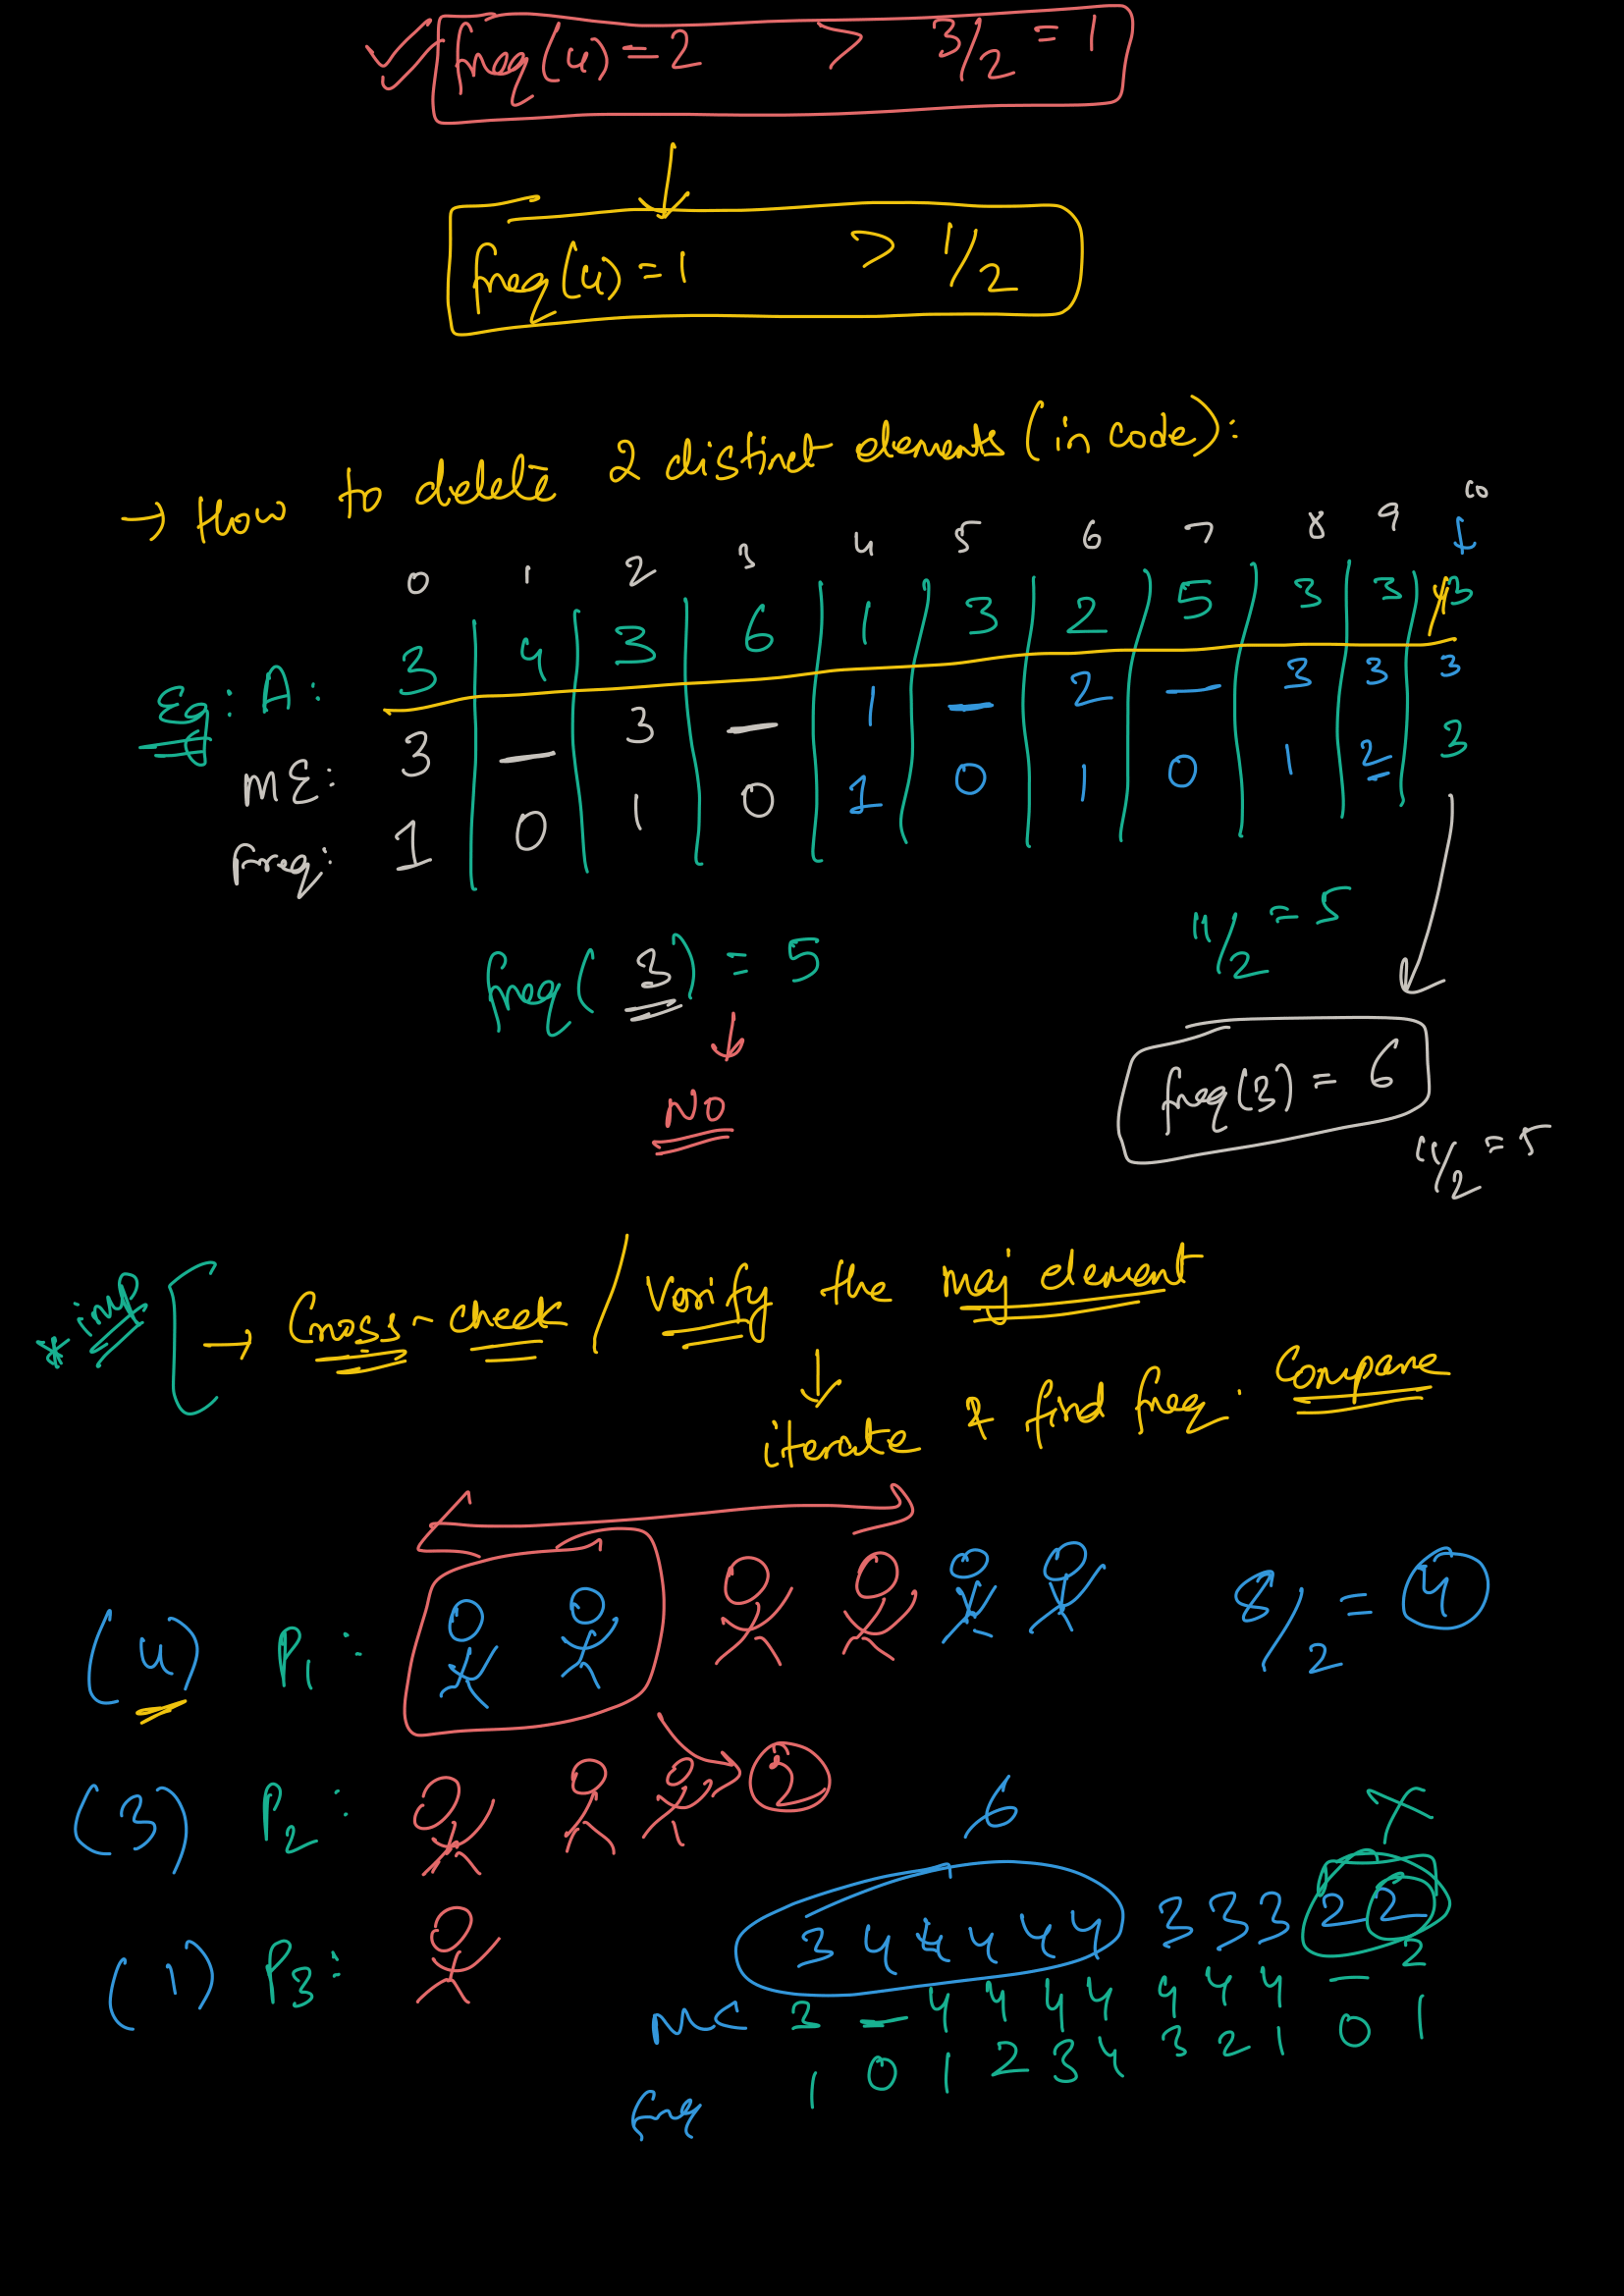 freq(4) = 2 > 3/2 = 1
freq(4) = 1 > 1/2
→ How to delete 2 distinct elements (in code):
0 1 2 3 4 5 6 7 8 9 10
Eg: A: 3 4 3 6 1 3 2 5 3 3 3
ME: 3 — 3 — 1 — 2 — 3 3 3
Freq: 1 0 1 0 1 0 1 0 1 2 3
11/2 = 5
freq(3) = 5
NO
freq(3) = 6
11/2 = 5
* imp → Cross-check / Verify the maj element
↓
iterate & find freq. Compare
(4) P1: 8/2 = 4
(3) P2: 2
(1) P3:
6
3 4 4 4 4 4 3 3 3 2 2
3 — 4 4 4 4 4 4 4 — 2
freq 1 0 1 2 3 4 3 2 1 0 1